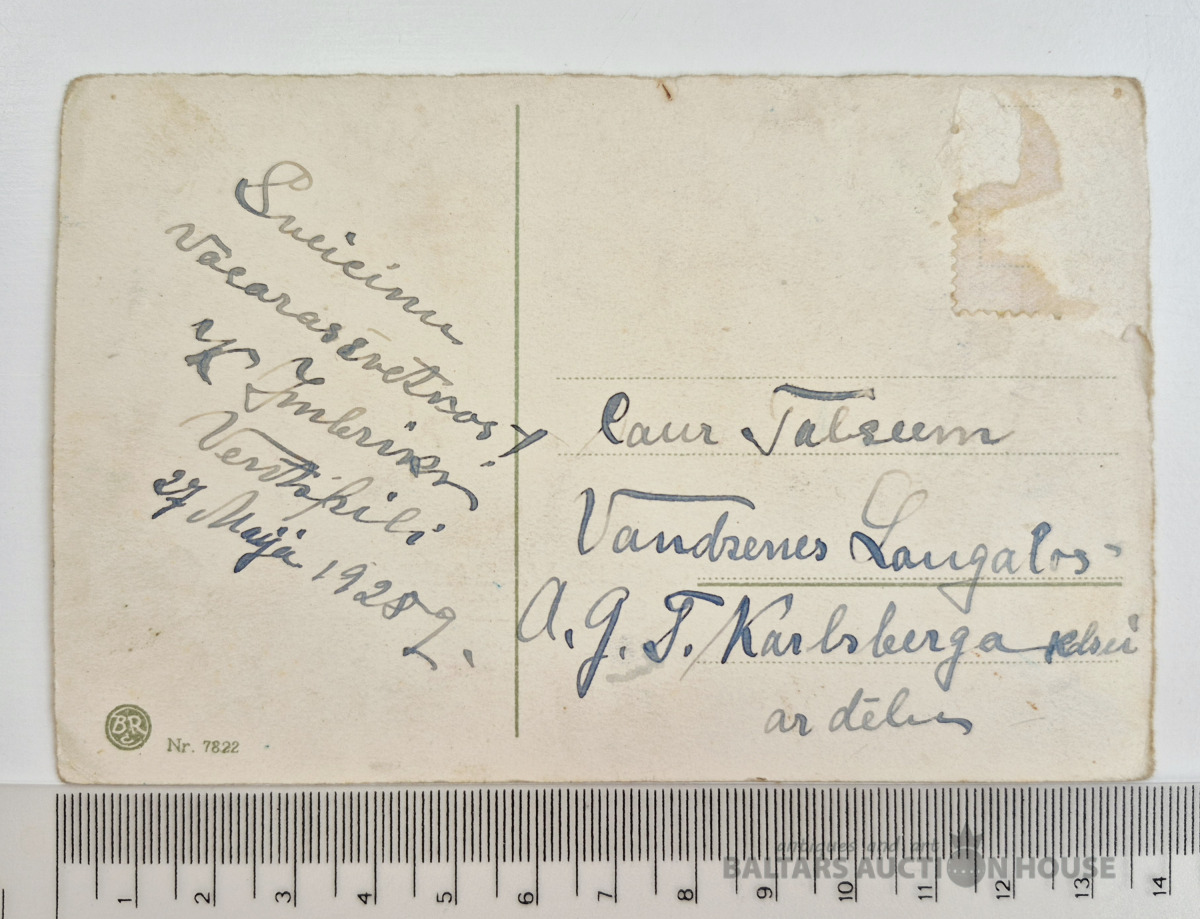 Sveicinu
vasarassvētkos!
K Imbriks
Ventspilī
27 Maijā 1928 g.
Caur Talsiem
Vandzenes Laugalos
A. G. F. Karlsberga kdzei
ar dēlu
BR
Nr. 7822
antiques and art
BALTARS AUCTION HOUSE
1 2 3 4 5 6 7 8 9 10 11 12 13 14